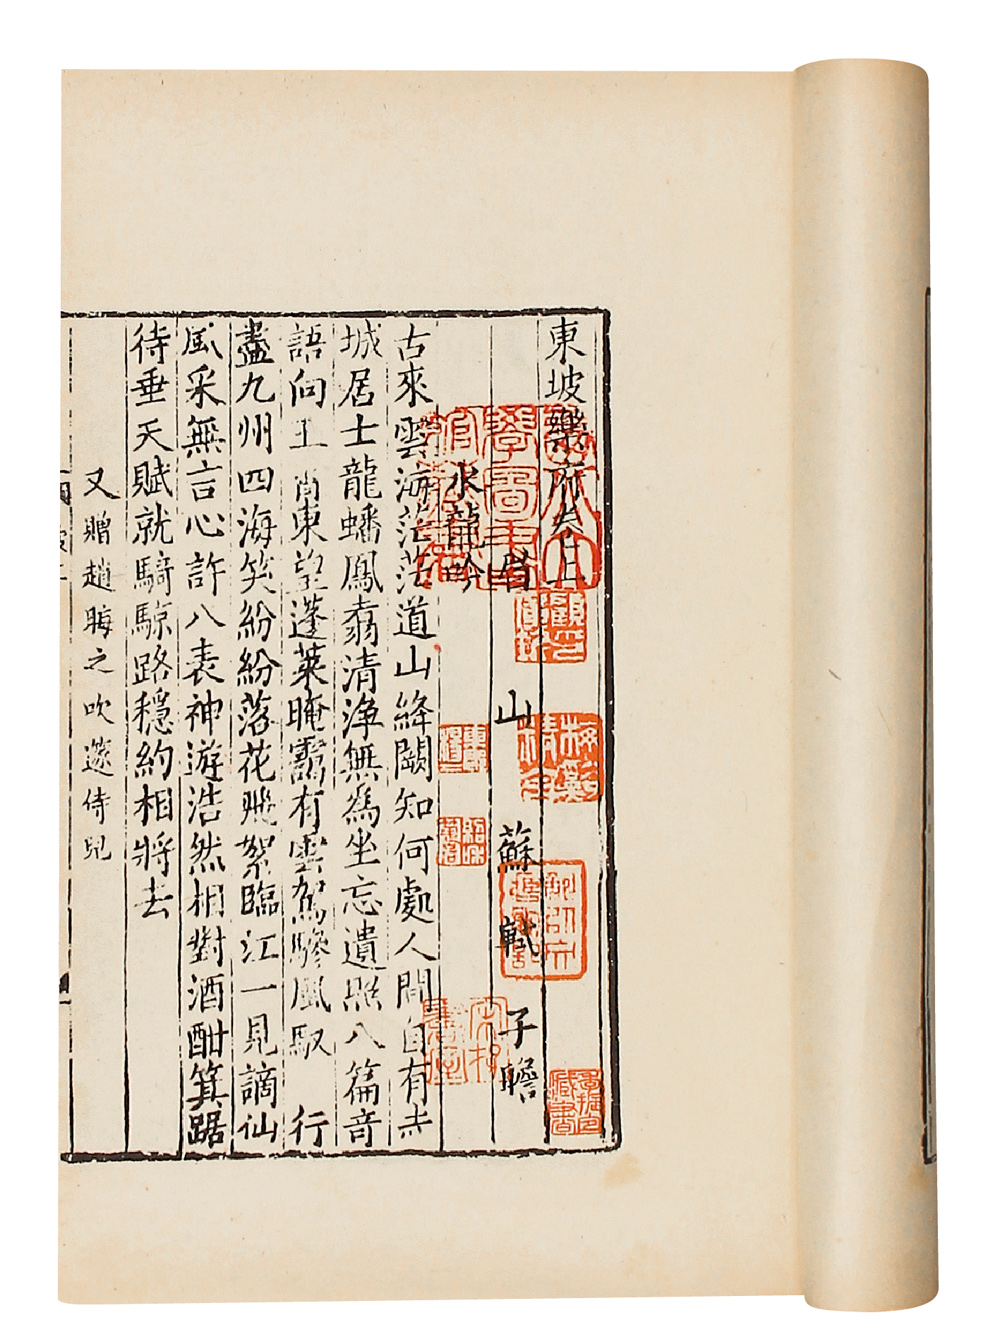 東坡樂府卷上
眉山蘇軾子瞻
水龍吟
古來雲海茫茫道山絳闕知何處人間自有赤
城居士龍蟠鳳翥清淨無爲坐忘遺照八篇奇
語向玉霄東望蓬萊晻靄有雲駕驂風馭行
盡九州四海笑紛紛落花飛絮臨江一見謫仙
風采無言心許八表神遊浩然相對酒酣箕踞
待垂天賦就騎鯨路穩約相將去
又贈趙晦之吹篴侍兒